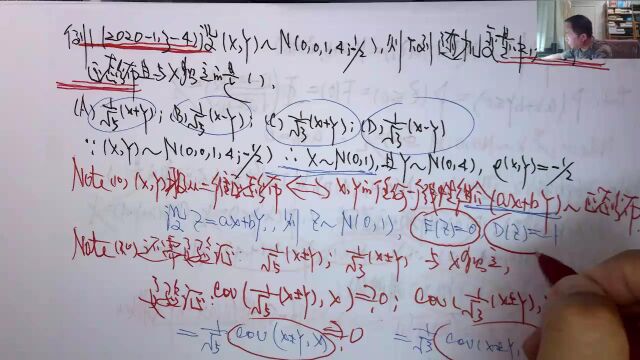 例1 (2020-1,3-4) 设(X,Y)~N(0,0,1,4;-1/2), 则下列随机变量中,
正态分布且与X独立的是( ).
(A) 1/√5(X+Y); (B) 1/√5(X-Y); (C) 1/√3(X+Y); (D) 1/√3(X-Y)
∵(X,Y)~N(0,0,1,4;-1/2) ∴X~N(0,1), 且Y~N(0,4), ρ(X,Y)=-1/2
Note(1), (X,Y)服从二维正态分布 ⟺ X,Y的任一非零线性组合(aX+bY)~正态分布.
设Z=aX+bY, 则Z~N(0,1), E(Z)=0 D(Z)=1
Note(2) 还需验证: 1/√5(X±Y), 1/√3(X±Y) 与X独立,
验证: Cov(1/√5(X±Y), X)=?0; Cov(1/√3(X±Y),
=1/√5 Cov(X±Y, X)=?0 =1/√3 Cov(X±Y,